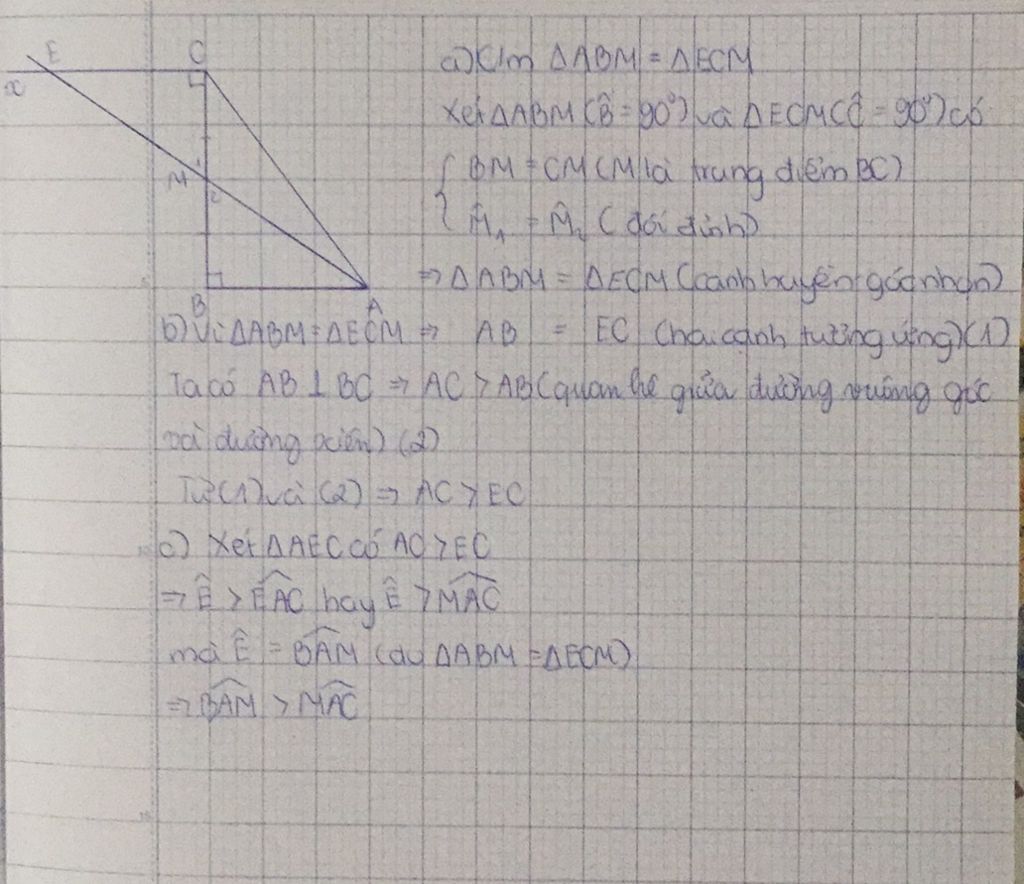 E C
x
M 1
2
B A
a) C/m ΔABM = ΔECM
Xét ΔABM (B̂ = 90°) và ΔECM (Ĉ = 90°) có
{ BM = CM (M là trung điểm BC)
M̂₁ = M̂₂ (đối đỉnh)
⇒ ΔABM = ΔECM (cạnh huyền góc nhọn)
b) Vì ΔABM = ΔECM ⇒ AB = EC (hai cạnh tương ứng) (1)
Ta có AB ⊥ BC ⇒ AC > AB (quan hệ giữa đường vuông góc
và đường xiên) (2)
Từ (1) và (2) ⇒ AC > EC
c) Xét ΔAEC có AC > EC
⇒ Ê > EAC hay Ê > MAC
mà Ê = BAM (do ΔABM = ΔECM)
⇒ BAM > MAC